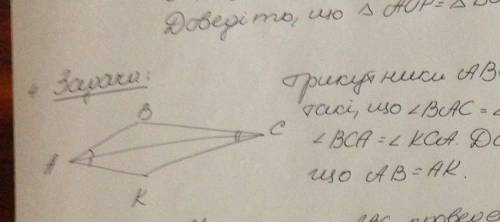 Доведіть, що △ AOP = △
Задачи:
Трикутники AB
такі, що ∠BAC = ∠
∠BCA = ∠KCA. До
що AB = AK.
B
A
C
K